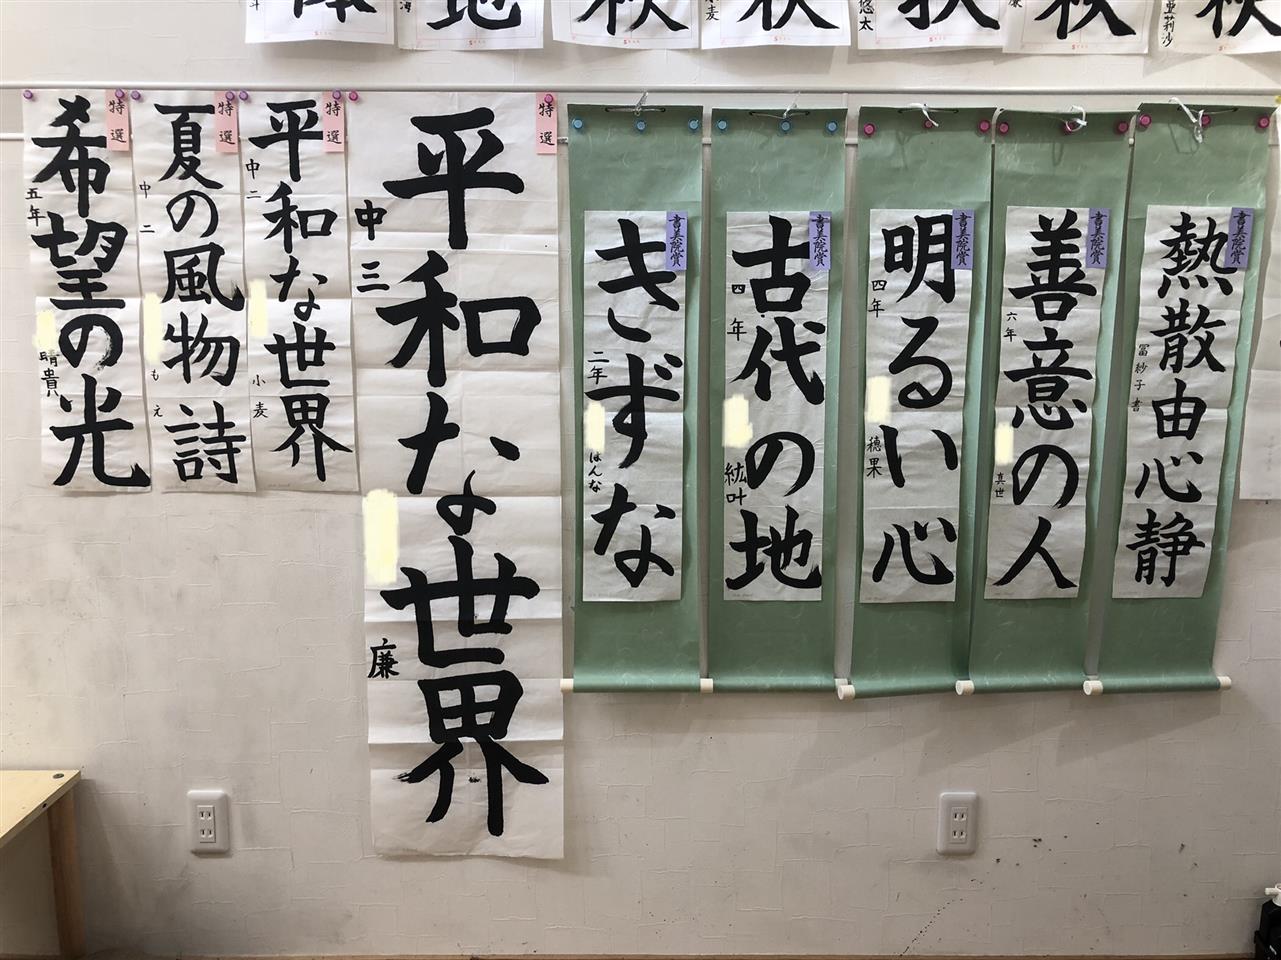 海
地
小麦
秋
秋
悠太
秋
秋
亜莉沙
秋
書美院賞
熱散由心静
冨紗子書
書美院賞
善意の人
六年
真世
書美院賞
明るい心
四年
穂果
書美院賞
古代の地
四年
紘叶
書美院賞
きずな
二年
はんな
特選
平和な世界
中三
廉
特選
平和な世界
中二
小麦
特選
夏の風物詩
中二
もえ
特選
希望の光
五年
晴貴